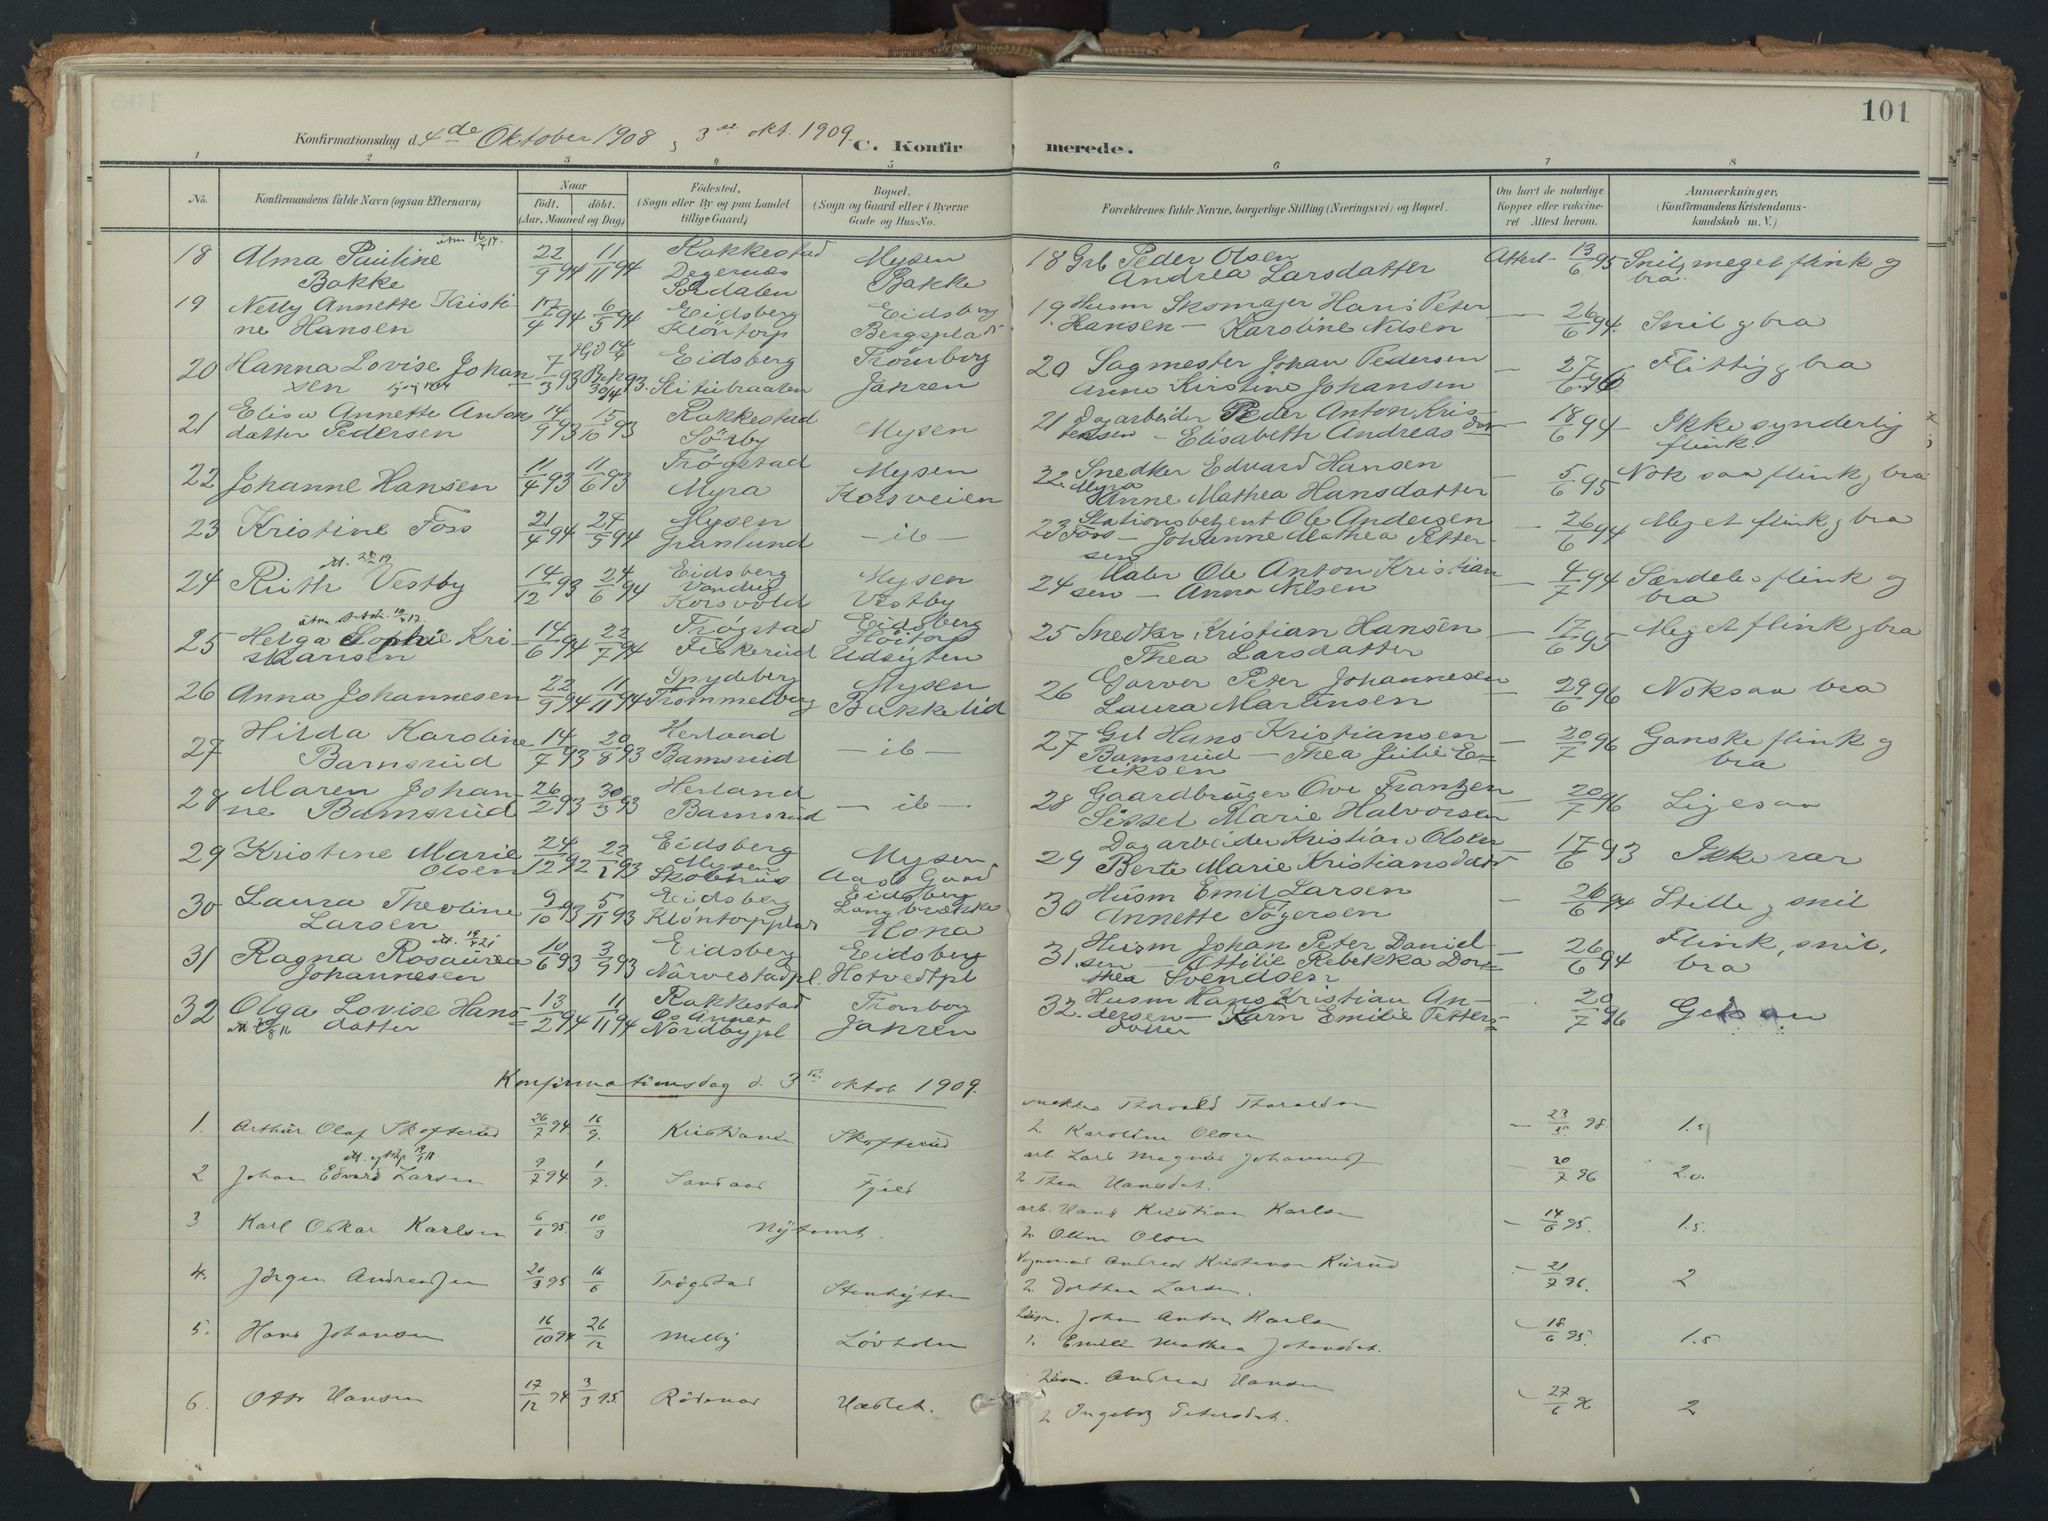 101
Konfirmationsdag d. 4de Oktober 1908, 3die okt. 1909.
C. Konfirmerede.
1 2 3 4 5 6 7 8
No.
Konfirmandens fulde Navn (ogsaa Efternavn)
Naar
födt. döbt.
(Aar, Maaned og Dag)
Födested.
(Sogn eller By og paa Landet
tillige Gaard)
Bopæl.
(Sogn og Gaard eller i Byerne
Gade og Hus-No.
Forældrenes fulde Navne, borgerlige Stilling (Næringsvei) og Bopæl.
Om havt de naturlige
Kopper eller vakcine-
ret Attest herom.
Anmærkninger.
(Konfirmandens Kristendoms-
kundskab m. V.)
18 Alma Pauline 22/9 94 11/11 94 Rakkestad Mysen 18 Grb Peder Olsen Attest 13/6 95 Snil, meget flink og
Bakke Degernæs Bakke Andrea Larsdatter bra.
Sördalen
19 Nelly Annette Kristi- 17/4 94 6/5 94 Eidsberg Eidsberg 19. Husm Skomager Hans Peter - 26/6 94. Snil g bra
ne Hansen Klöntorp Bergsplads Hansen - Karoline Nilsen
20 Hanna Lovise Johan 7/3 93 Hjd 14/4 Eidsberg Trömborg 20 Sagmester Johan Pedersen - 27/6 96 Flittig g bra
sen 30/4 93. Jahren Anne Kirstine Johansen
21 Elisa Annette Anton 14/9 93 15/10 93 Rakkestad Mysen 21 Dagarbeider Peder Anton Kris- - 18/6 94 Ikke synderlig
datter Pedersen Sörby tensen - Elisabeth Andreasdat flink.
22 Johanne Hansen 11/4 93 11/6 93 Trögstad Mysen 22 Snedker Edvard Hansen - 5/6 95 Nok saa flink g bra
Myra Korsveien Myra Anne Mathea Hansdatter
23 Kristine Foss 21/4 94 24/5 94 Mysen - ib - 23 Stationsbetjent Ole Andersen - 26/6 94 Meget flink g bra
Granlund Foss - Johanne Mathea Petter-
sen
24 Ruth Vestby 14/12 93 24/6 94 Eidsberg Mysen 24 Maler Ole Anton Kristian - 4/7 94 Særdeles flink g
Korsvold Vestby sen - Anna Nilsen bra
25 Helga Sophie Kri 14/6 94 22/7 94 Trögstad Eidsberg 25 Snedker Kristian Hansen - 17/6 95 Meget flink g bra
stiansen Fiskerud Höitorp Thea Larsdatter
Udsigten
26 Anna Johannesen 22/9 94 11/11 94 Spydeberg Mysen 26 Garver Peter Johannesen - 29/6 96 Noksaa bra
Trommelberg Bakkelid Laura Martinsen
27 Hilda Karoline 14/7 93 20/8 93 Herland - ib - 27 Grb Hans Kristiansen - 20/7 96 Ganske flink g
Bamsrud Bamsrud Bamsrud - Thea Julie E- bra
riksen
28 Maren Johan- 26/2 93 30/3 93 Herland - ib - 28 Gaardbruger Ove Frantzen - 20/7 96 Ligesaa
ne Bamsrud Bamsrud Sissel Marie Halvorsen
29 Kristine Marie 24/12 92 22/1 93 Eidsberg Mysen 29 Dagarbeider Kristian Olsen - 17/6 93 Ikke rar
Olsen Mysen Aas Gaard Berte Marie Kristiansdatr
Skolehus
30 Laura Theoline 9/10 93 5/11 93 Eidsberg Eidsberg 30 Husm Emil Larsen - 26/6 94 Stille g snil
Larsen Klöntorpplad Langbrække Annette Tögersen
Mona
31 Ragna Rosaurea 10/6 93 3/9 93 Eidsberg Eidsberg 31. Husm Johan Peter Daniel- - 26/6 94 Flink, snil,
Johannesen Narvestadpl. Hotvedtpl sen - Ottilie Rebekka Doro- bra
thea Svendsen
32 Olga Lovise Hans 13/2 94 11/11 94 Rakkestad Tromborg 32. Husm Hans Kristian An- 20/7 96
datter Os Annex Jahren dersen - Karn Emilie Petters-
Nordbypl datter
Konfirmationsdag d. 3die oktob 1909.
1. Arthur Olaf Skofterud 26/7 94 16/9. Kristiania Skofterud Thorvald Thoraldsen - 23/5. 98. 1.5
2 Karoline Olsen
2 Johan Edvard Larsen 9/7 94 1/9. Fjeld arb. Lars Magnus Johannes - 20/7 96 2.0.
2 Thea Hansdat.
3 Karl Oskar Karlsen 6/1 95. 10/3 Nytomt. arb. Hans Kristian Karlsen - 14/6 95. 1.5.
2. Olsen
4. Jörgen Andreassen 20/3 95 16/6 Trögstad Stenhytten Andreas Kristensen - 21/7 96. 2
2. Dorthea Larsen.
5. Hans Johansen 16/10 94 26/12 Melby Lövholen Johan Anton Karlsen 18/6 95. 1.5
1. Emilie Mathea Johansdat.
6. Otto Hansen 17/12 94 3/3 95. Rödenæs Andreas Hansen 27/6 96 2
2 Ingeborg Petersdat.